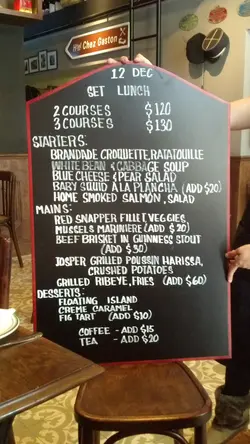 Hey! Chez Gaston
12 DEC
SET LUNCH
2 COURSES $120
3 COURSES $130
STARTERS:
BRANDADE CROQUETTE, RATATOUILLE
WHITE BEAN & CABBAGE SOUP
BLUE CHEESE & PEAR SALAD
BABY SQUID A LA PLANCHA (ADD $20)
HOME SMOKED SALMON, SALAD
MAINS:
RED SNAPPER FILLET, VEGGIES,
MUSSELS MARINIERE (ADD $20)
BEEF BRISKET IN GUINNESS STOUT
(ADD $30)
JOSPER GRILLED POUSSIN HARISSA,
CRUSHED POTATOES
GRILLED RIBEYE, FRIES (ADD $60)
DESSERTS:
FLOATING ISLAND
CREME CARAMEL
FIG TART (ADD $10)
COFFEE - ADD $15
TEA - ADD $20